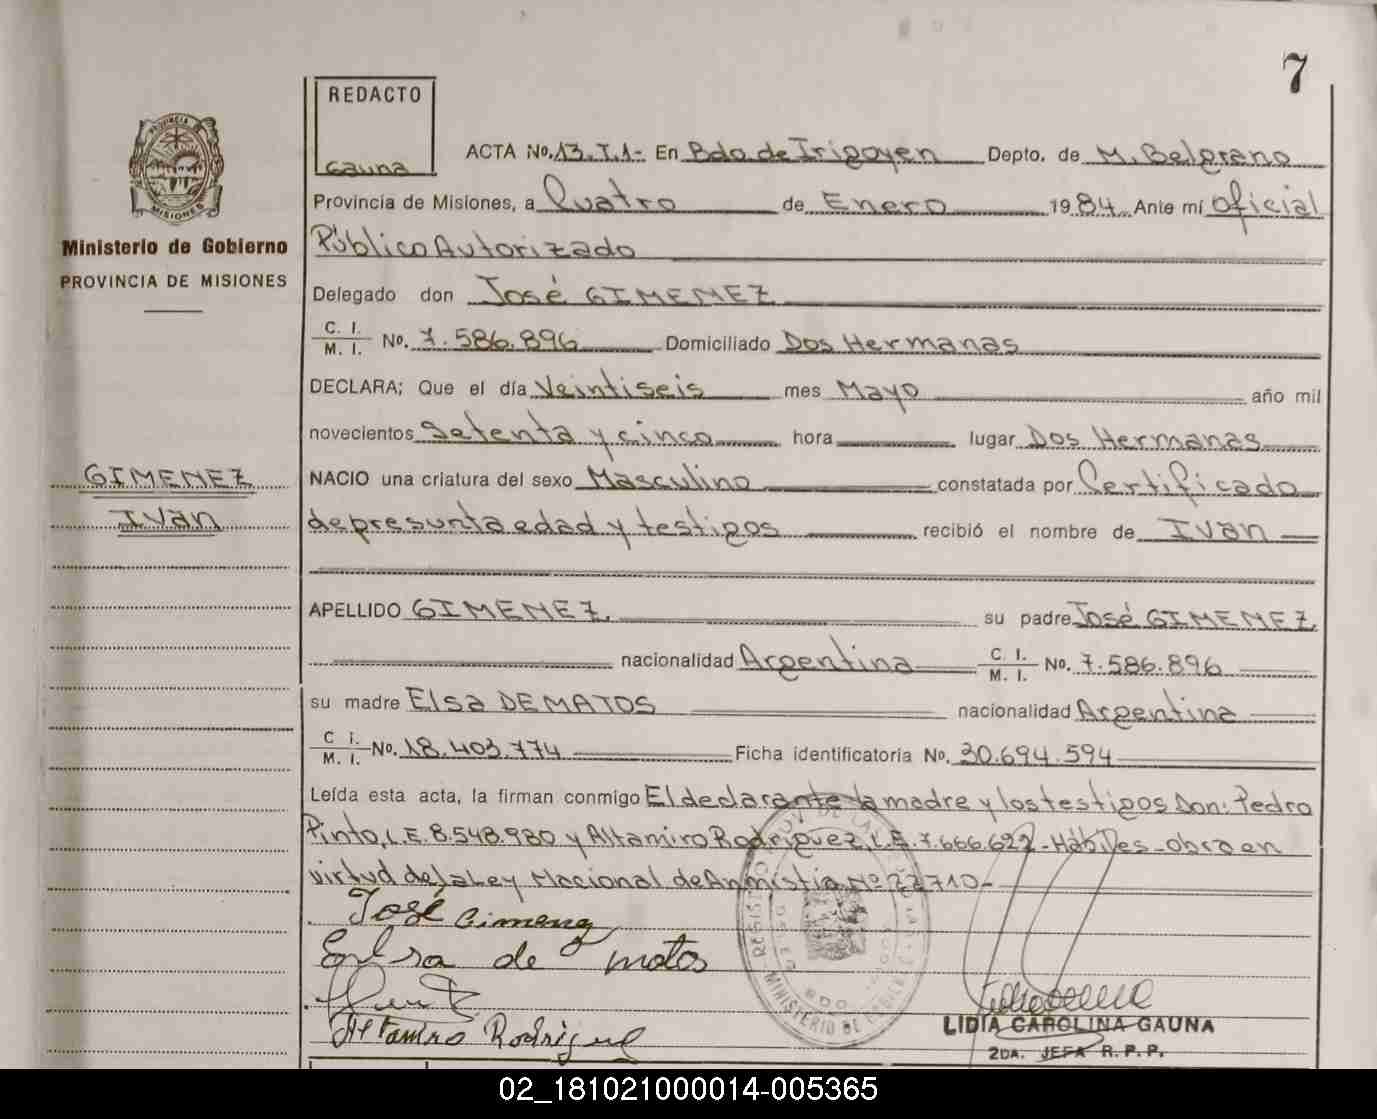 7
REDACTO
Gauna
PROVINCIA
MISIONES
Ministerio de Gobierno
PROVINCIA DE MISIONES
GIMENEZ
Ivan
ACTA No. 13. T. 1- En Bdo. de Irigoyen Depto. de M. Belgrano
Provincia de Misiones, a Cuatro de Enero 1984 Ante mí Oficial
Público Autorizado
Delegado don José GIMENEZ
C. I. / M. I. No. 7.586.896 Domiciliado Dos Hermanas
DECLARA; Que el día Veintiseis mes Mayo año mil
novecientos Setenta y cinco hora lugar Dos Hermanas
NACIO una criatura del sexo Masculino constatada por Certificado
de presunta edad y testigos recibió el nombre de Ivan
APELLIDO GIMENEZ su padre José GIMENEZ
nacionalidad Argentina C. I. / M. I. No. 7.586.896
su madre Elsa DE MATOS nacionalidad Argentina
C. I. / M. I. No. 18.403.774 Ficha identificatoria No. 30.694.594
Leída esta acta, la firman conmigo El declarante la madre y los testigos Don: Pedro
Pinto, L.E. 8.548.980 y Altamiro Rodriguez, L.E. 7.666.622 - Hábiles - obra en
virtud de la Ley Nacional de Anmistia Nº 22710-
José Gimenez
Eulsa de matos
Altamiro Rodriguez
LIDIA CAROLINA GAUNA
2DA. JEFA R. P. P.
02_181021000014-005365